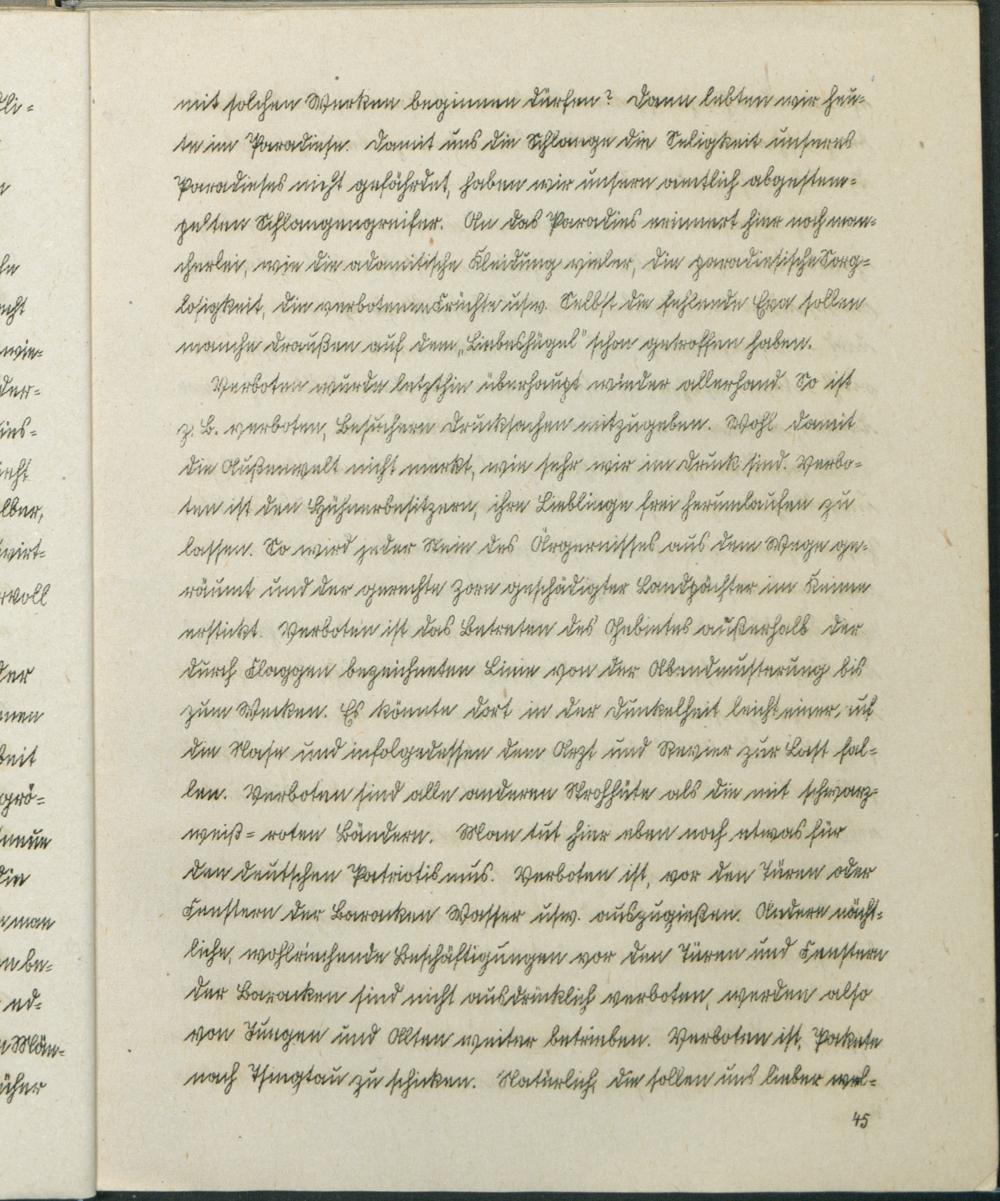 mit solchen Werken beginnen dürfen? Dann lebten wir heu-
te im Paradiese. Damit uns die Schlange die Seligkeit unseres
Paradieses nicht gefährdet, haben wir unsern amtlich abgestem-
pelten Schlangengreifer. An das Paradies erinnert hier noch man-
cherlei, wie die adamitische Kleidung vieler, die paradiesische Sorg-
losigkeit, die verbotenen Früchte usw. Selbst die fehlende Eva sollen
manche draußen auf dem „Liebeshügel" schon getroffen haben.
Verboten wurde letzthin überhaupt wieder allerhand. So ist
z. B. verboten, Besuchern Drucksachen mitzugeben. Wohl damit
die Außenwelt nicht merkt, wie sehr wir im Druck sind. Verbo-
ten ist den Hühnerbesitzern, ihre Lieblinge frei herumlaufen zu
lassen. So wird jeder Stein des Ärgernisses aus dem Wege ge-
räumt und der gerechte Zorn geschädigter Landpächter im Keime
erstickt. Verboten ist das Betreten des Gebietes außerhalb der
durch Flaggen bezeichneten Linie von der Abendmusterung bis
zum Wecken. Es könnte dort in der Dunkelheit leicht einer, uf
die Nase und infolgedessen dem Arzt und Revier zur Last fal-
len. Verboten sind alle anderen Strohhüte als die mit schwarz-
weiß-roten Bändern. Man tut hier eben noch etwas für
den deutschen Patriotismus. Verboten ist, vor den Türen oder
Fenstern der Baracken Wasser usw. auszugießen. Andere nächt-
liche, wohlriechende Beschäftigungen vor den Türen und Fenstern
der Baracken sind nicht ausdrücklich verboten, werden also
von Jungen und Alten weiter betrieben. Verboten ist, Pakete
nach Tsingtau zu schicken. Natürlich, die sollen uns lieber wel-
45